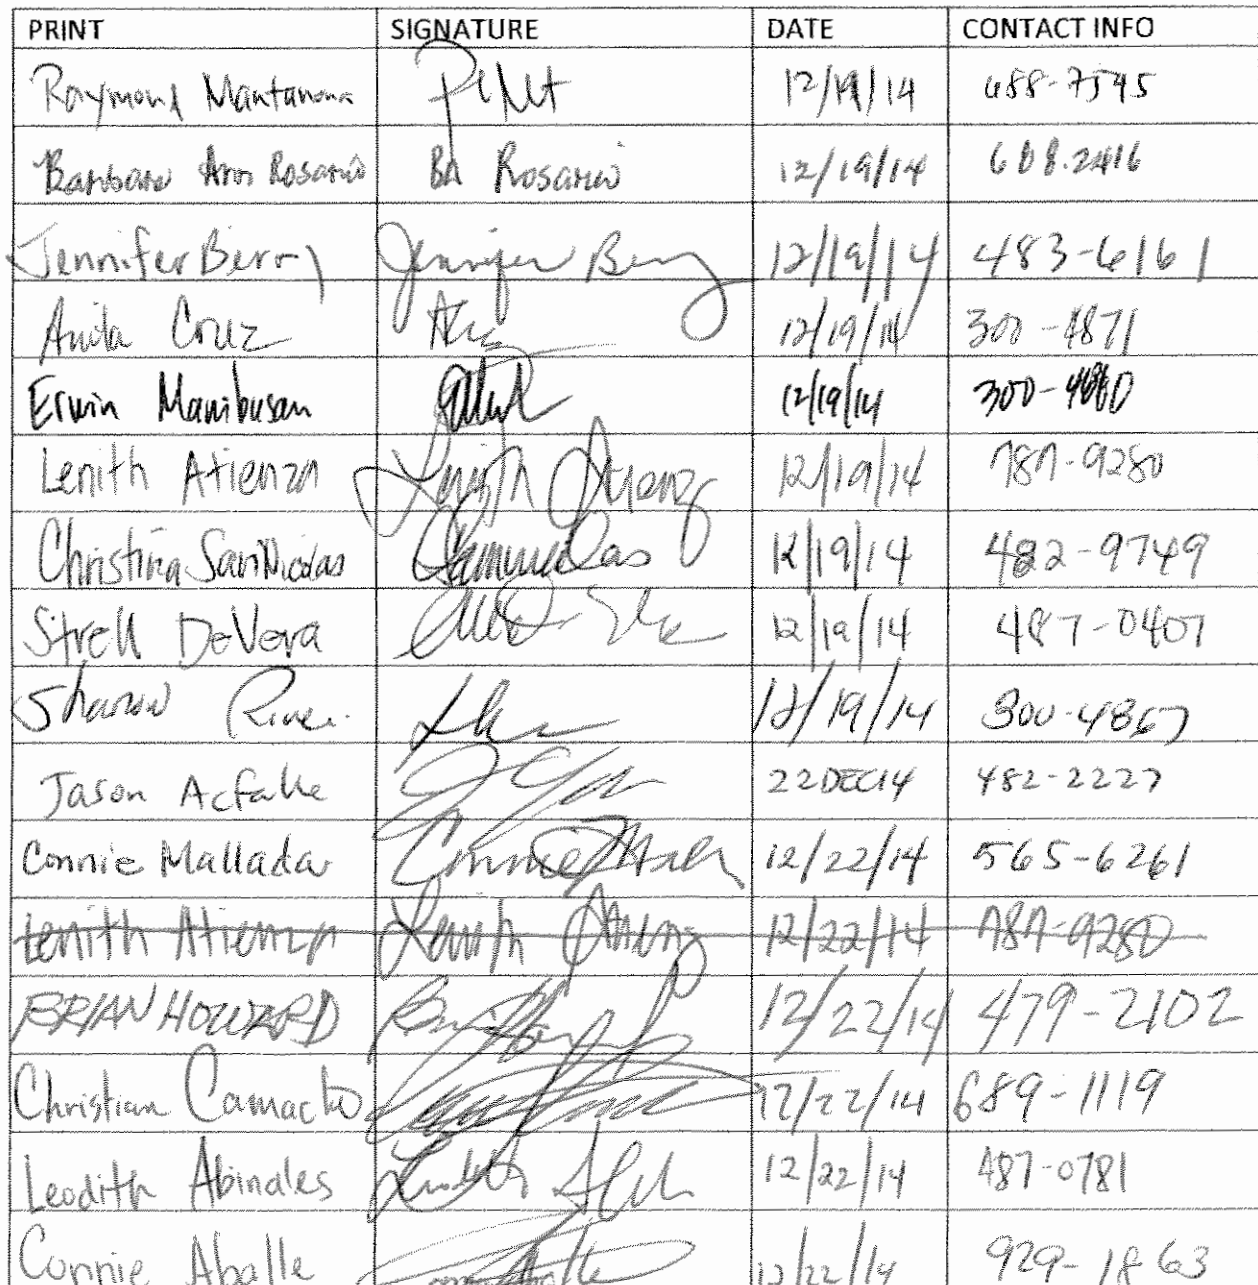 PRINT SIGNATURE DATE CONTACT INFO
Raymond Mantanona 12/19/14 688-7545
Barbara Ann Rosario BA Rosario 12/19/14 608.2416
Jennifer Berry Jennifer Berry 12/19/14 483-6161
Anita Cruz 12/19/14 300-4871
Erwin Manibusan 12/19/14
Lenith Atienza Lenith Atienza 12/19/14 787-9280
Christina SanNicolas 12/19/14 482-9749
Strell DeVera 12/19/14 487-0407
Sharon 12/19/14 300-4867
Jason Acfalle 22DEC14 482-2227
Connie Mallada Connie 12/22/14 565-6261
Lenith Atienza Lenith Atienza 12/22/14 787-9280
BRIAN HOWARD 12/22/14 479-2102
Christian Camacho 12/22/14 689-1119
Leodith Abinales 12/22/14 487-0781
Connie Aballe 12/22/14 929-1863